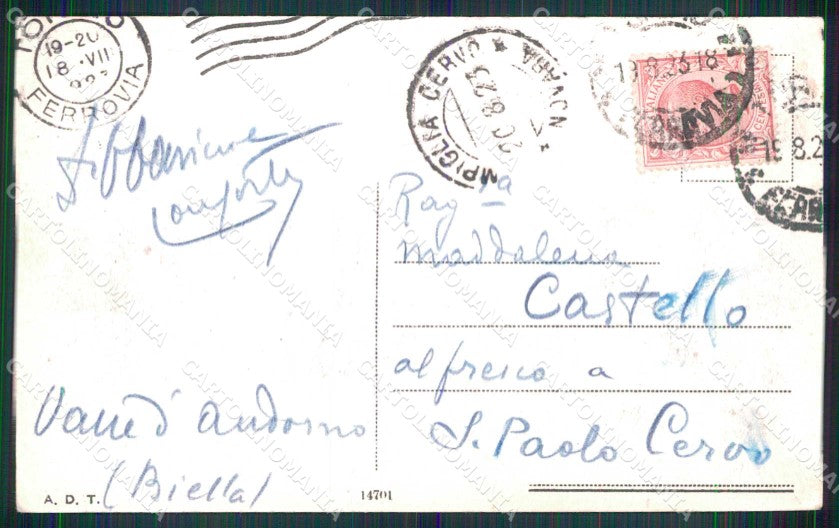 19-20
18 VII
FERROVIA
MPIGLIA CERVO * NOVARA *
20 8.23
19.8.23 18
19.8.2
FERR
Rag.ra
Maddalena
Castello
al fresco a
S. Paolo Cervo
Valle d'Andorno
(Biella)
A. D. T.
14701
CARTOLINOMANIA